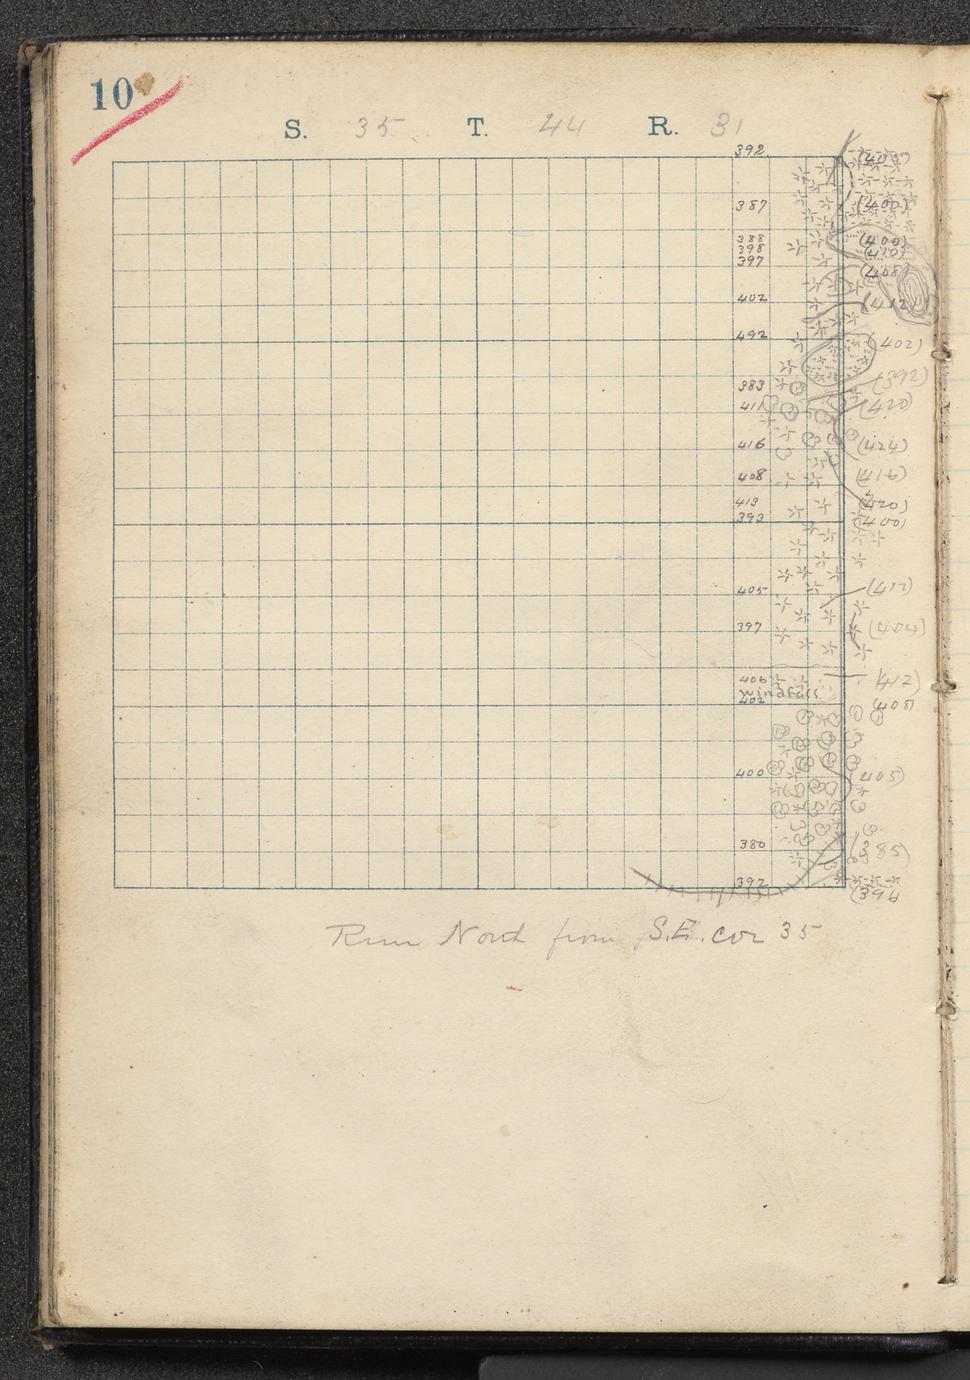 10
S. 35 T. 44 R. 31
392
387 (400)
388 (400)
398 (420)
397 (408)
402 (412)
492 (402)
383 (392)
411 (420)
416 (424)
408 (416)
413 (420)
393 (400)
405 (412)
397 (404)
406 (412)
Windfalls
402 (408)
400 (405)
380 (385)
392 (396)
Run North from S.E. cor 35